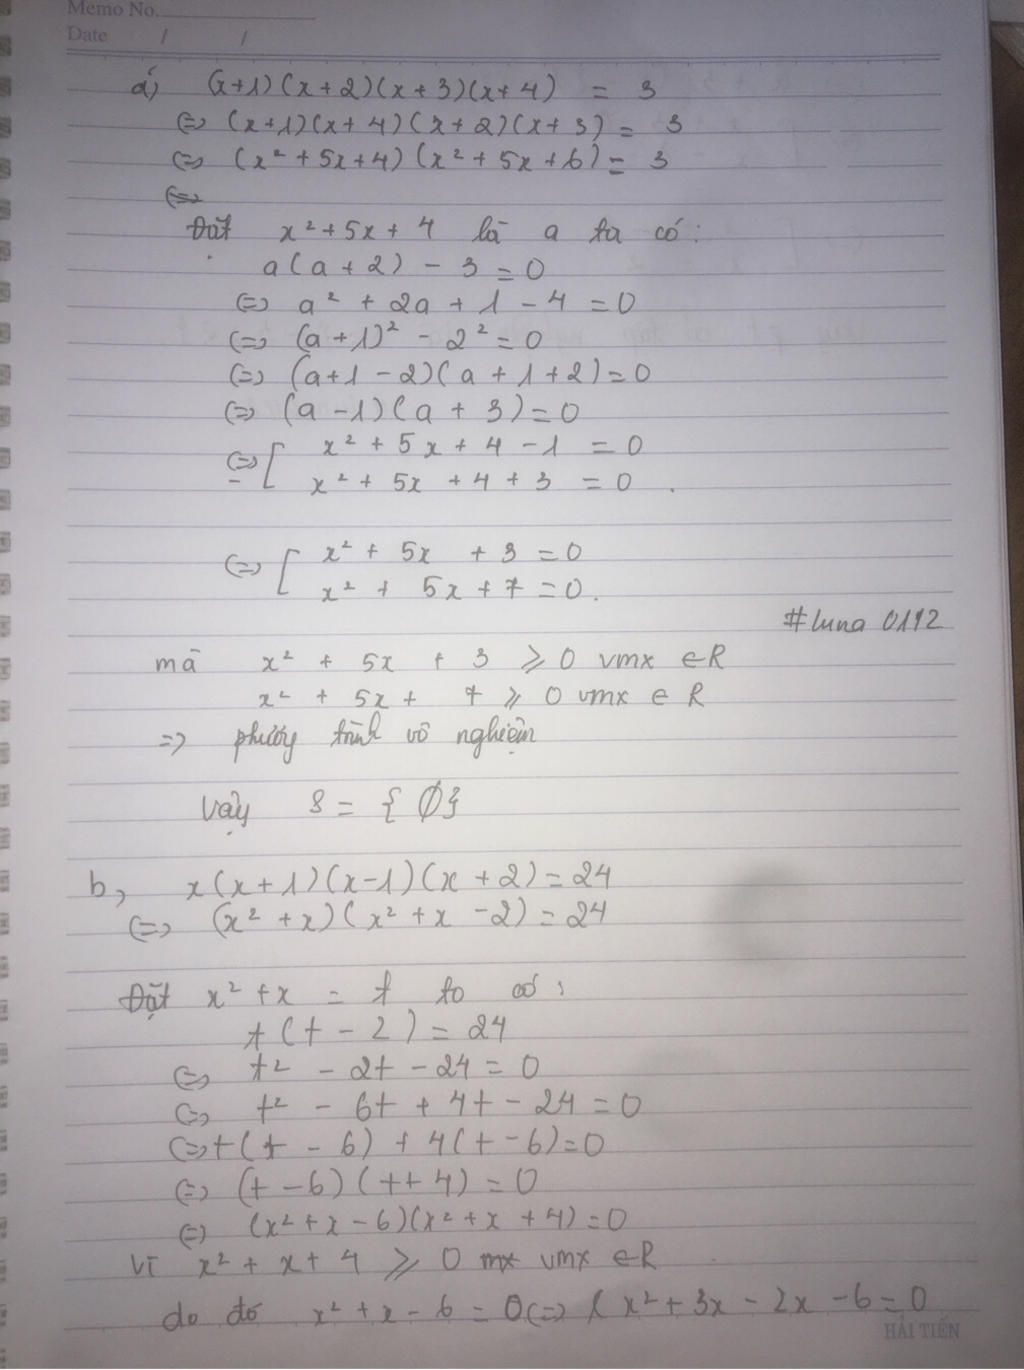 Memo No.
Date / /
a) (x+1)(x+2)(x+3)(x+4) = 3
(=) (x+1)(x+4)(x+2)(x+3) = 3
(=) (x² + 5x+4)(x² + 5x+6) = 3
(=)
Đặt x²+5x+4 là a ta có:
a(a+2) - 3 = 0
(=) a² + 2a + 1 - 4 = 0
(=) (a+1)² - 2² = 0
(=) (a+1-2)(a+1+2) = 0
(=) (a-1)(a+3) = 0
(=) [ x² + 5x + 4 - 1 = 0
x² + 5x + 4 + 3 = 0.
(=) [ x² + 5x + 3 = 0
x² + 5x + 7 = 0.
#luna 0112
mà x² + 5x + 3 ⩾ 0 vmx ∈ R
x² + 5x + 7 ⩾ 0 vmx ∈ R
=> phương trình vô nghiệm
Vậy S = { ∅}
b, x(x+1)(x-1)(x+2) = 24
(=) (x²+x)(x²+x-2) = 24
Đặt x²+x = t ta có:
t(t-2) = 24
(=) t² - 2t - 24 = 0
(=) t² - 6t + 4t - 24 = 0
(=) t(t-6) + 4(t-6) = 0
(=) (t-6)(t+4) = 0
(=) (x²+x-6)(x²+x+4) = 0
Vì x²+x+4 ⩾ 0 vmx ∈ R
do đó x²+x-6 = 0 (=) (x²+3x-2x-6 = 0
HẢI TIẾN